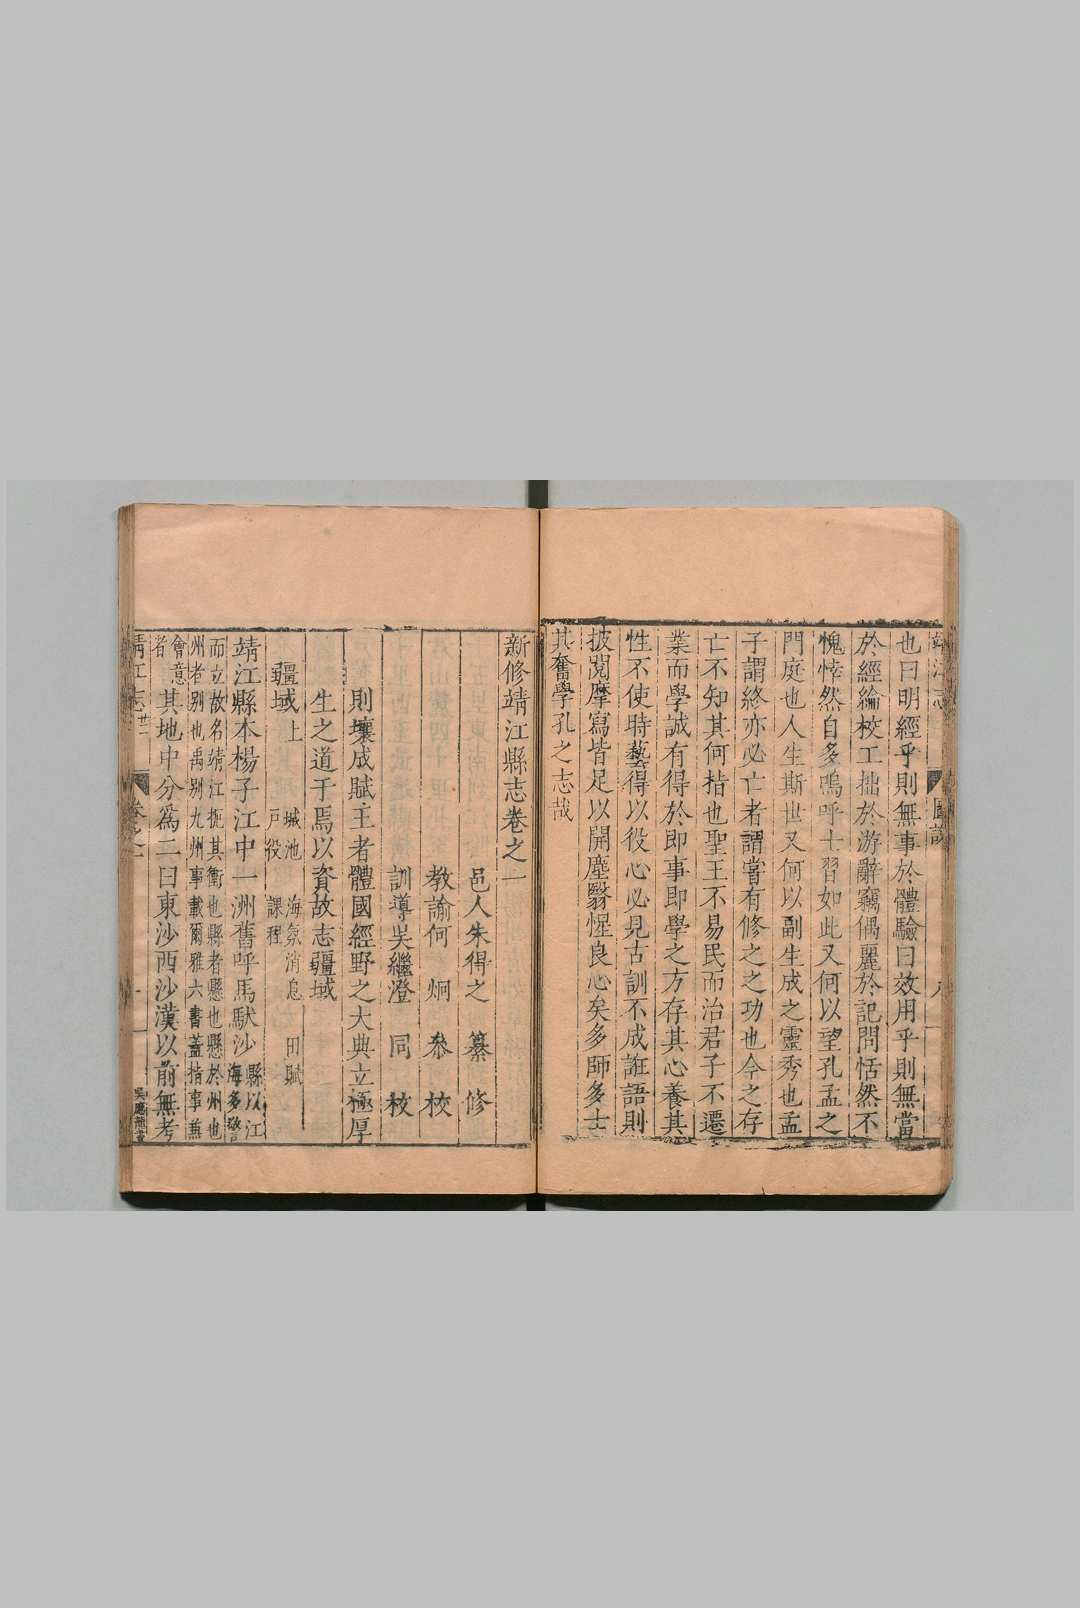 也曰明經乎則無事於體驗曰效用乎則無當
於經綸校工拙於游辭竊偶麗於記問恬然不
愧悻然自多嗚呼士習如此又何以望孔孟之
門庭也人生斯世又何以副生成之靈秀也孟
子謂終亦必亡者謂嘗有修之之功也今之存
亡不知其何指也聖王不易民而治君子不遷
業而學誠有得於即事即學之方存其心養其
性不使時藝得以役心必見古訓不成誑語則
披閱摩寫皆足以開塵翳惺良心矣多師多士
其奮學孔之志哉
新修靖江縣志卷之一
邑人朱得之 纂修
教諭何 炯 叅校
訓導吳繼澄 同校
則壤成賦王者體國經野之大典立極厚
生之道于焉以資故志疆域
疆域上 城池 海氛消息 田賦
戶役 課程
靖江縣本楊子江中一洲舊呼馬馱沙 縣以江
海多警
而立故名靖江扼其衝也縣者懸也懸於州也
州者别也禹别九州事載爾雅六書蓋指事兼
會意
者 其地中分爲二曰東沙西沙漢以前無考
靖江志
卷之一
一